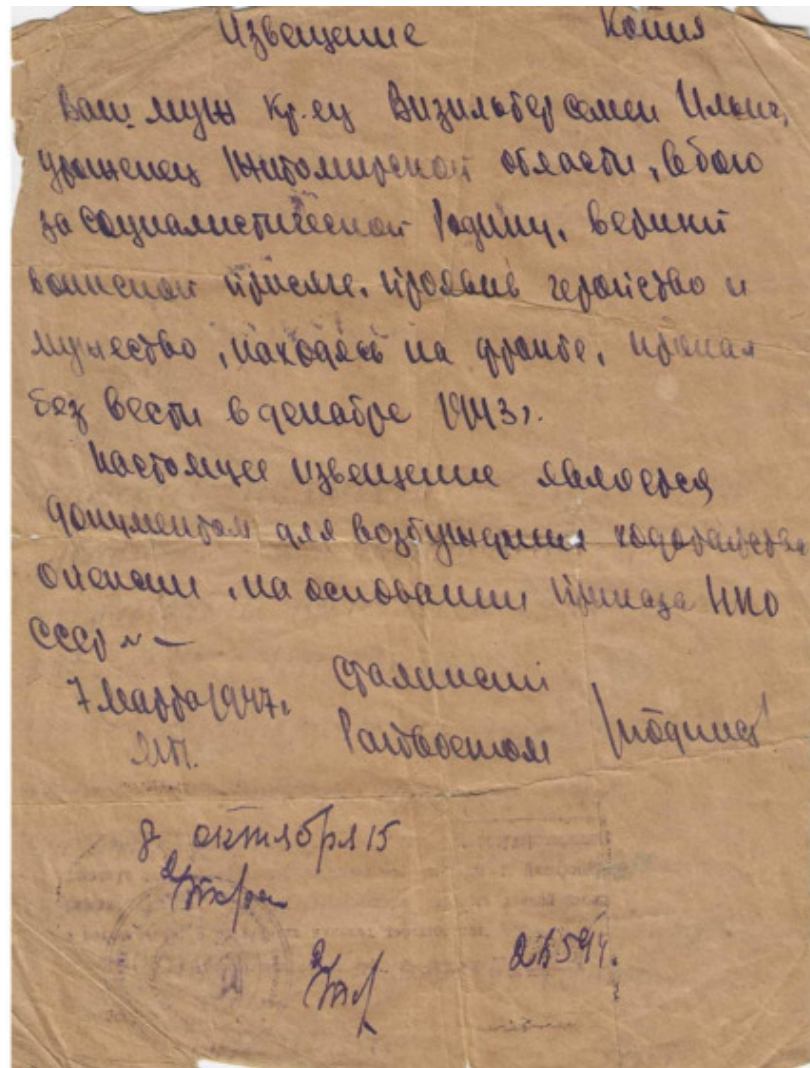 Извещение Копия
Ваш муж Кр.ец Визильтер Семен Ильич,
уроженец Житомирской области, в бою
за социалистической Родину, верный
воинской присяге, проявив геройство и
мужество, находясь на фронте, пропал
без вести в декабре 1943г.
Настоящее извещение является
документом для возбуждения ходатайства
о пенсии, на основании приказа НКО
СССР № —
7 Марта 1947г. Сталинский
М.П. Райвоенком
8 октября 15